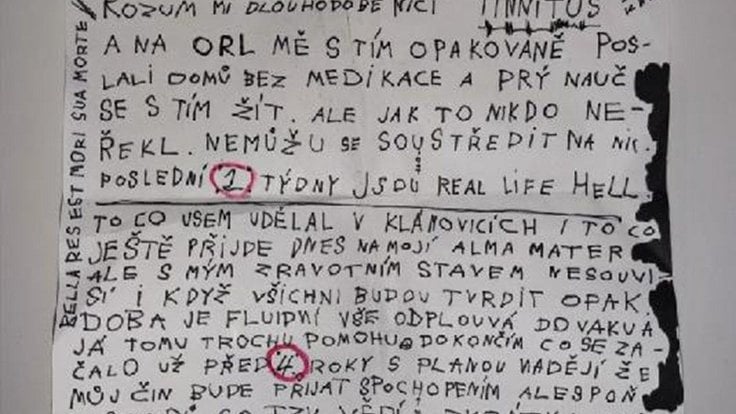 ROZUM MI DLOUHODOBĚ NIČÍ TINNITUS
A NA ORL MĚ S TÍM OPAKOVANĚ POS-
LALI DOMŮ BEZ MEDIKACE A PRÝ NAUČ
SE S TÍM ŽÍT. ALE JAK TO NIKDO NE-
ŘEKL. NEMŮŽU SE SOUSTŘEDIT NA NIC.
POSLEDNÍ 2 TÝDNY JSOU REAL LIFE HELL.
TO CO JSEM UDĚLAL V KLÁNOVICÍCH I TO CO
JEŠTĚ PŘIJDE DNES NA MOJÍ ALMA MATER
ALE S MÝM ZRAVOTNÍM STAVEM NESOUVI
SÍ I KDYŽ VŠICHNI BUDOU TVRDIT OPAK
DOBA JE FLUIDNÍ VŠE ODPLOUVÁ DO VAKUA
JÁ TOMU TROCHU POMOHU A DOKONČÍM CO SE ZA-
ČALO UŽ PŘED 4 ROKY S PLANOU NADĚJÍ ŽE
MŮJ ČIN BUDE PŘIJAT S POCHOPENÍM ALESPOŇ
BELLA RES EST MORI SUA MORTE